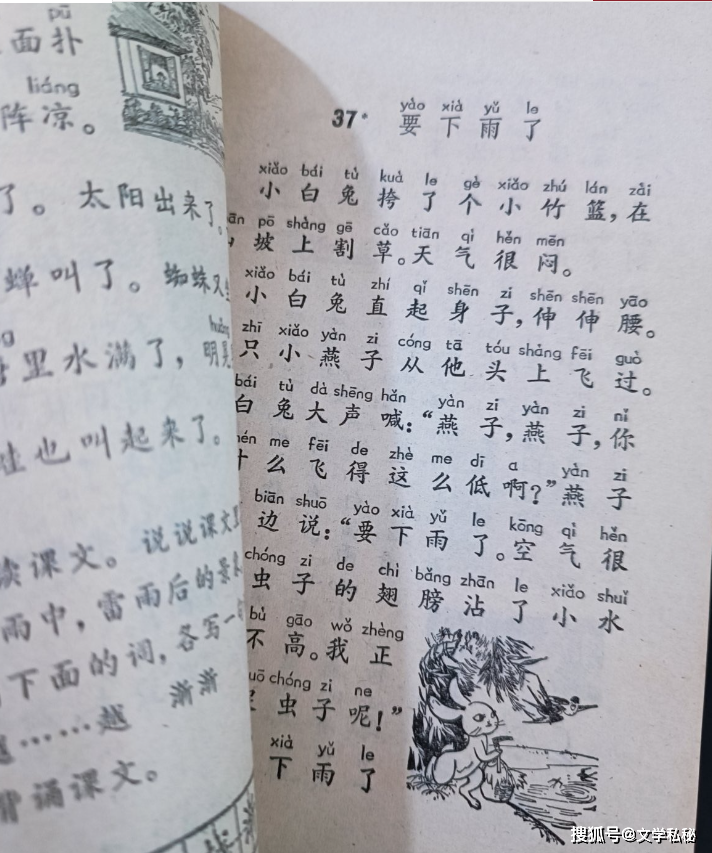 pū
面扑
liáng
阵凉。
了。太阳出来了。
蝉叫了。蜘蛛又
里水满了，
也叫起来了。
读课文。说说课文
雨中，雷雨后的景
下面的词，各写一
……越 渐渐
背诵课文。
yào xià yǔ le
37· 要下雨了
xiǎo bái tù kuà le gè xiǎo zhú lán zài
小白兔挎了个小竹篮，在
pō shàng gē cǎo tiān qì hěn mēn
坡上割草。天气很闷。
xiǎo bái tù zhí qǐ shēn zi shēn shēn yāo
小白兔直起身子，伸伸腰。
zhī xiǎo yàn zi cóng tā tóu shàng fēi guò
只小燕子从他头上飞过。
bái tù dà shēng hǎn yàn zi yàn zi nǐ
白兔大声喊：“燕子，燕子，你
me fēi de zhè me dī a yàn zi
什么飞得这么低啊？”燕子
biān shuō yào xià yǔ le kōng qì hěn
边说：“要下雨了。空气很
chóng zi de chì bǎng zhān le xiǎo shuǐ
虫子的翅膀沾了小水
bù gāo wǒ zhèng
不高。我正
chóng zi ne
虫子呢！”
xià yǔ le
下雨了
搜狐号@文学私秘